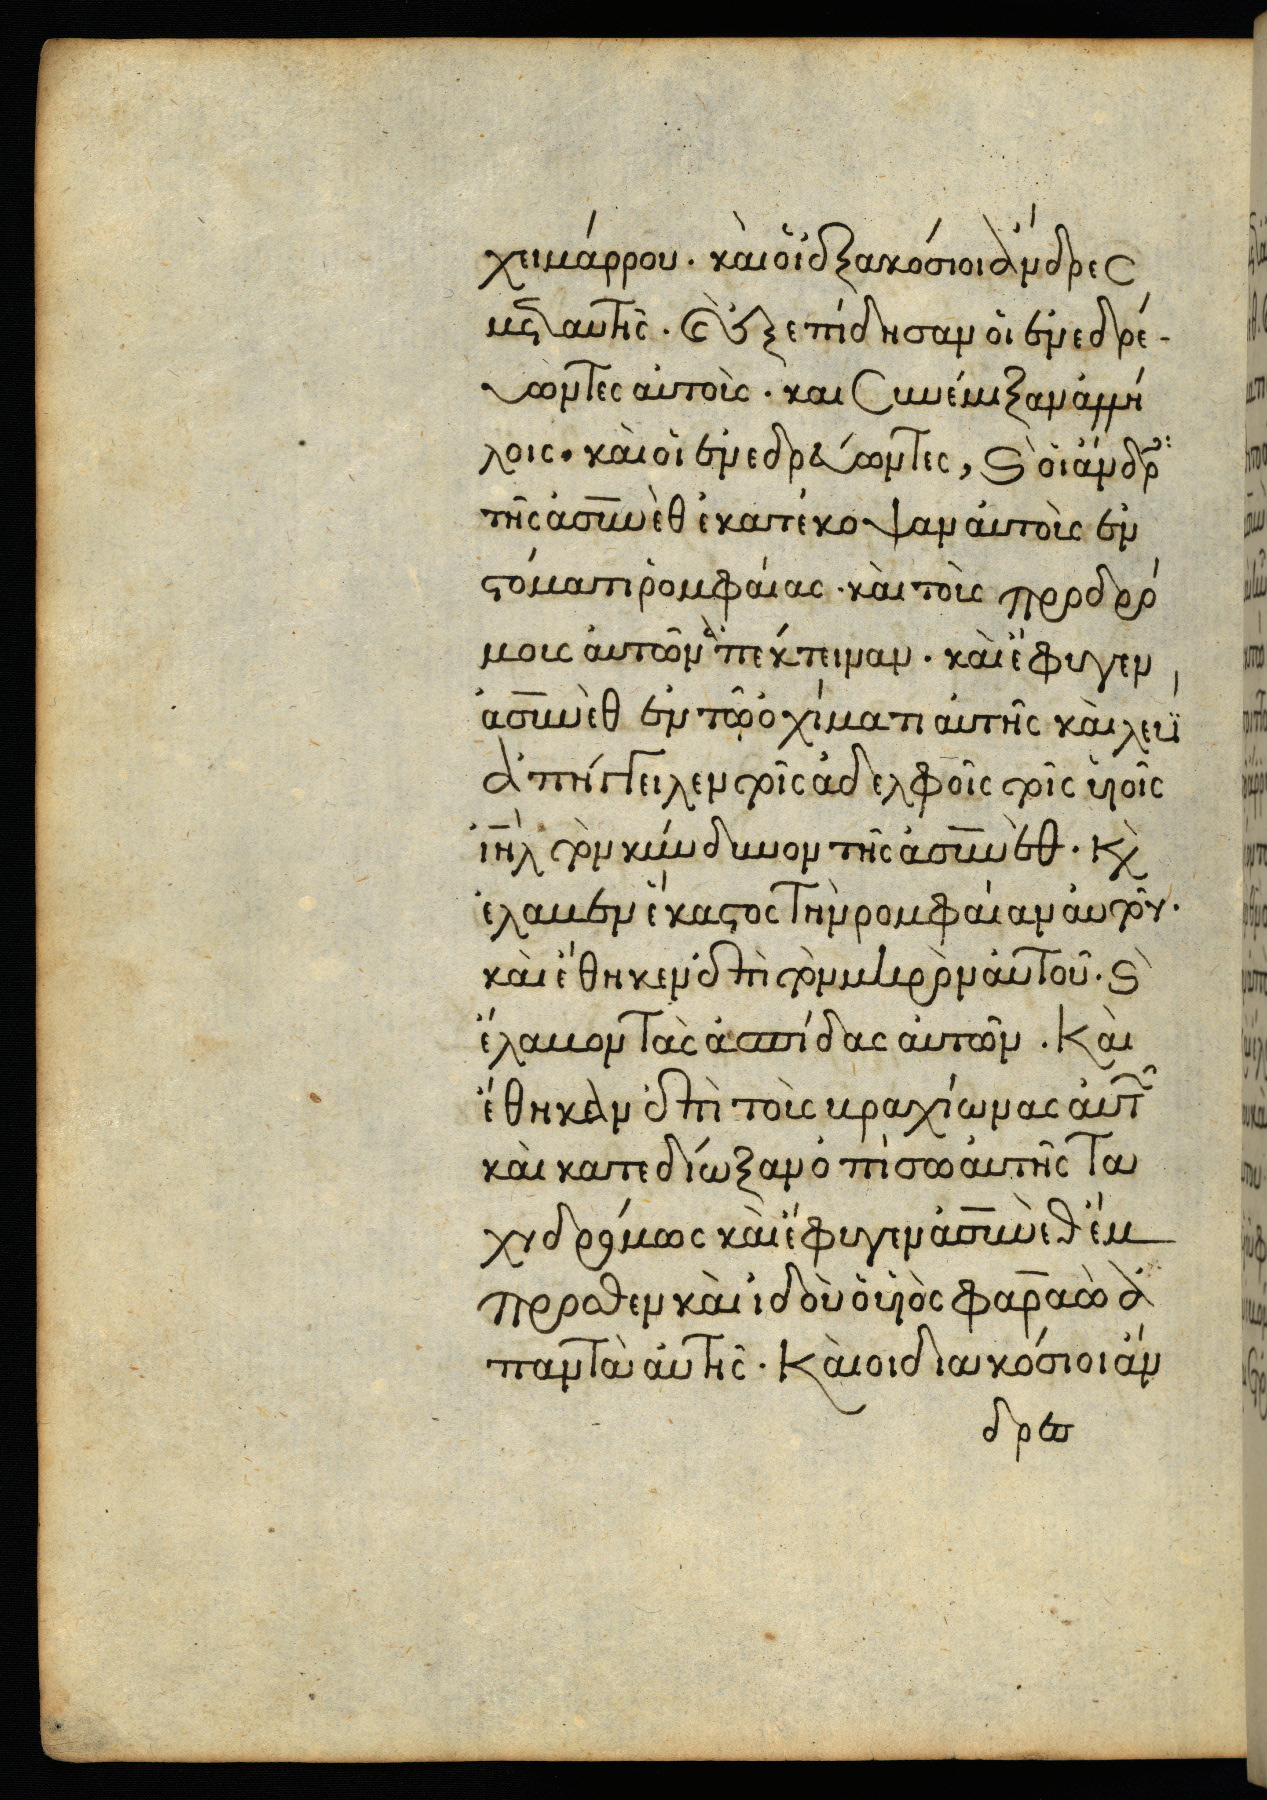 χειμάρρου. καὶ οἱ ἑξακόσιοι ἄνδρες
μετ αυτῆς. καὶ ἐξεπίδησαν οἱ ἐνεδρέ-
ύωντες ἀυτοὺς. και συνέμιξαν ἀλλή
λοις. καὶ οἱ ἐνεδρεύωντες, καὶ οἱ ἄνδρες
τῆς ἀσυνὲθ ἐκατέκοψαν ἀυτοὺς ἐν
στόματι ρομφάιας. καὶ τοὺς προδρό
μους ἀυτῶν ἀπέκτειναν. καὶ ἔφυγεν
ἀσυνὲθ ἐν τῷ ὀχίματι ἀυτῆς καὶ λευὶ
ἀπήγγειλεν τοῖς ἀδελφοῖς τοῖς ὑιοῖς
ιηλ τὸν κίνδυνον τῆς ἀσυνὲθ. κὶ
έλαβεν ἕκαστος τὴν ρομφάιαν ἀυτοῦ.
καὶ ἔθηκεν ἐπὶ τὸν μικρὸν ἀυτοῦ. καὶ
έλαβον τὰς ἀσπίδας ἀυτῶν. Καὶ
έθηκαν ἐπὶ τοὺς βραχίωνας ἀυτῶν
καὶ κατεδίωξαν ὀπίσω ἀυτῆς τα
χυδρόμως καὶ ἔφυγεν ἀσυνὲθ ἔμ
προσθεν καὶ ἰδοὺ ὁ ὑιὸς φαραὼ ἀ
παντᾶ ἀυτῆς. Καὶ οι διακόσιοι ἄν
δρες